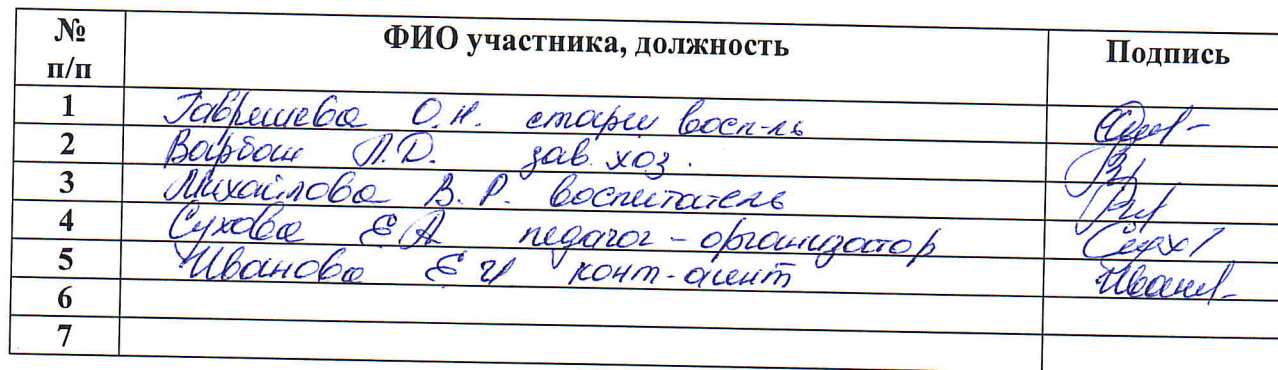 № п/п ФИО участника, должность Подпись
1 Гаврешева О.Н. старш восп-ль
2 Варбош Л.D. зав. хоз.
3 Михайлова В. Р. воспитатель
4 Сухова Е А педагог-организатор Сух
5 Иванова Е И конт-агент Иван
6
7